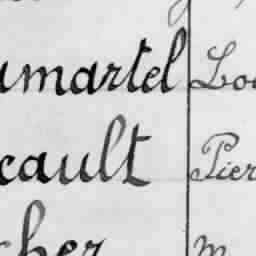 umartel Lou
cault Pier
cher M